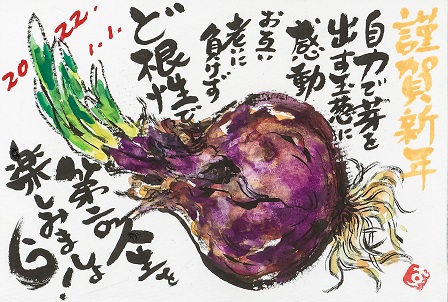 謹賀新年
自力で芽を
出す玉葱に
感動
お互い
老に
負けず
ど根性で
第二の人生を
楽しみましょ
う!
2022.1.1.